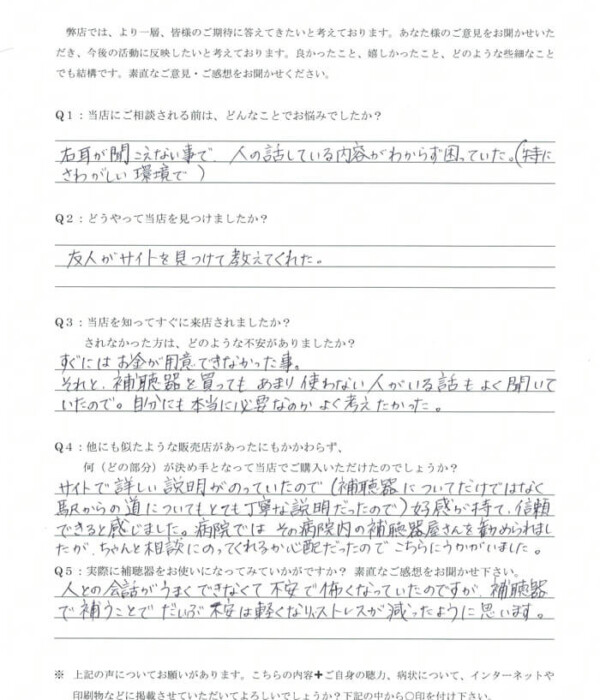 弊店では、より一層、皆様のご期待に答えてきたいと考えております。あなた様のご意見をお聞かせいた
だき、今後の活動に反映したいと考えております。良かったこと、嬉しかったこと、どのような些細なこと
でも結構です。素直なご意見・ご感想をお聞かせください。
Q1：当店にご相談される前は、どんなことでお悩みでしたか？
右耳が聞こえない事で、人の話している内容がわからず困っていた。(特に
さわがしい環境で)
Q2：どうやって当店を見つけましたか？
友人がサイトを見つけて教えてくれた。
Q3：当店を知ってすぐに来店されましたか？
されなかった方は、どのような不安がありましたか？
すぐにはお金が用意できなかった事。
それと、補聴器を買ってもあまり使わない人がいる話もよく聞いて
いたので。自分にも本当に必要なのかよく考えたかった。
Q4：他にも似たような販売店があったにもかかわらず、
何（どの部分）が決め手となって当店でご購入いただけたのでしょうか？
サイトで詳しい説明がのっていたので(補聴器についてだけではなく
駅からの道についてもとても丁寧な説明だったので)好感が持て、信頼
できると感じました。病院ではその病院内の補聴器屋さんを勧められまし
たが、ちゃんと相談にのってくれるか心配だったのでこちらにうかがいました。
Q5：実際に補聴器をお使いになってみていかがですか？ 素直なご感想をお聞かせ下さい。
人との会話がうまくできなくて不安で怖くなっていたのですが、補聴器
で補うことでだいぶ不安は軽くなりストレスが減ったように思います。
※ 上記の声についてお願いがあります。こちらの内容＋ご自身の聴力、病状について、インターネットや
印刷物などに掲載させていただいてよろしいでしょうか？下記の中から○印を付け下さい。